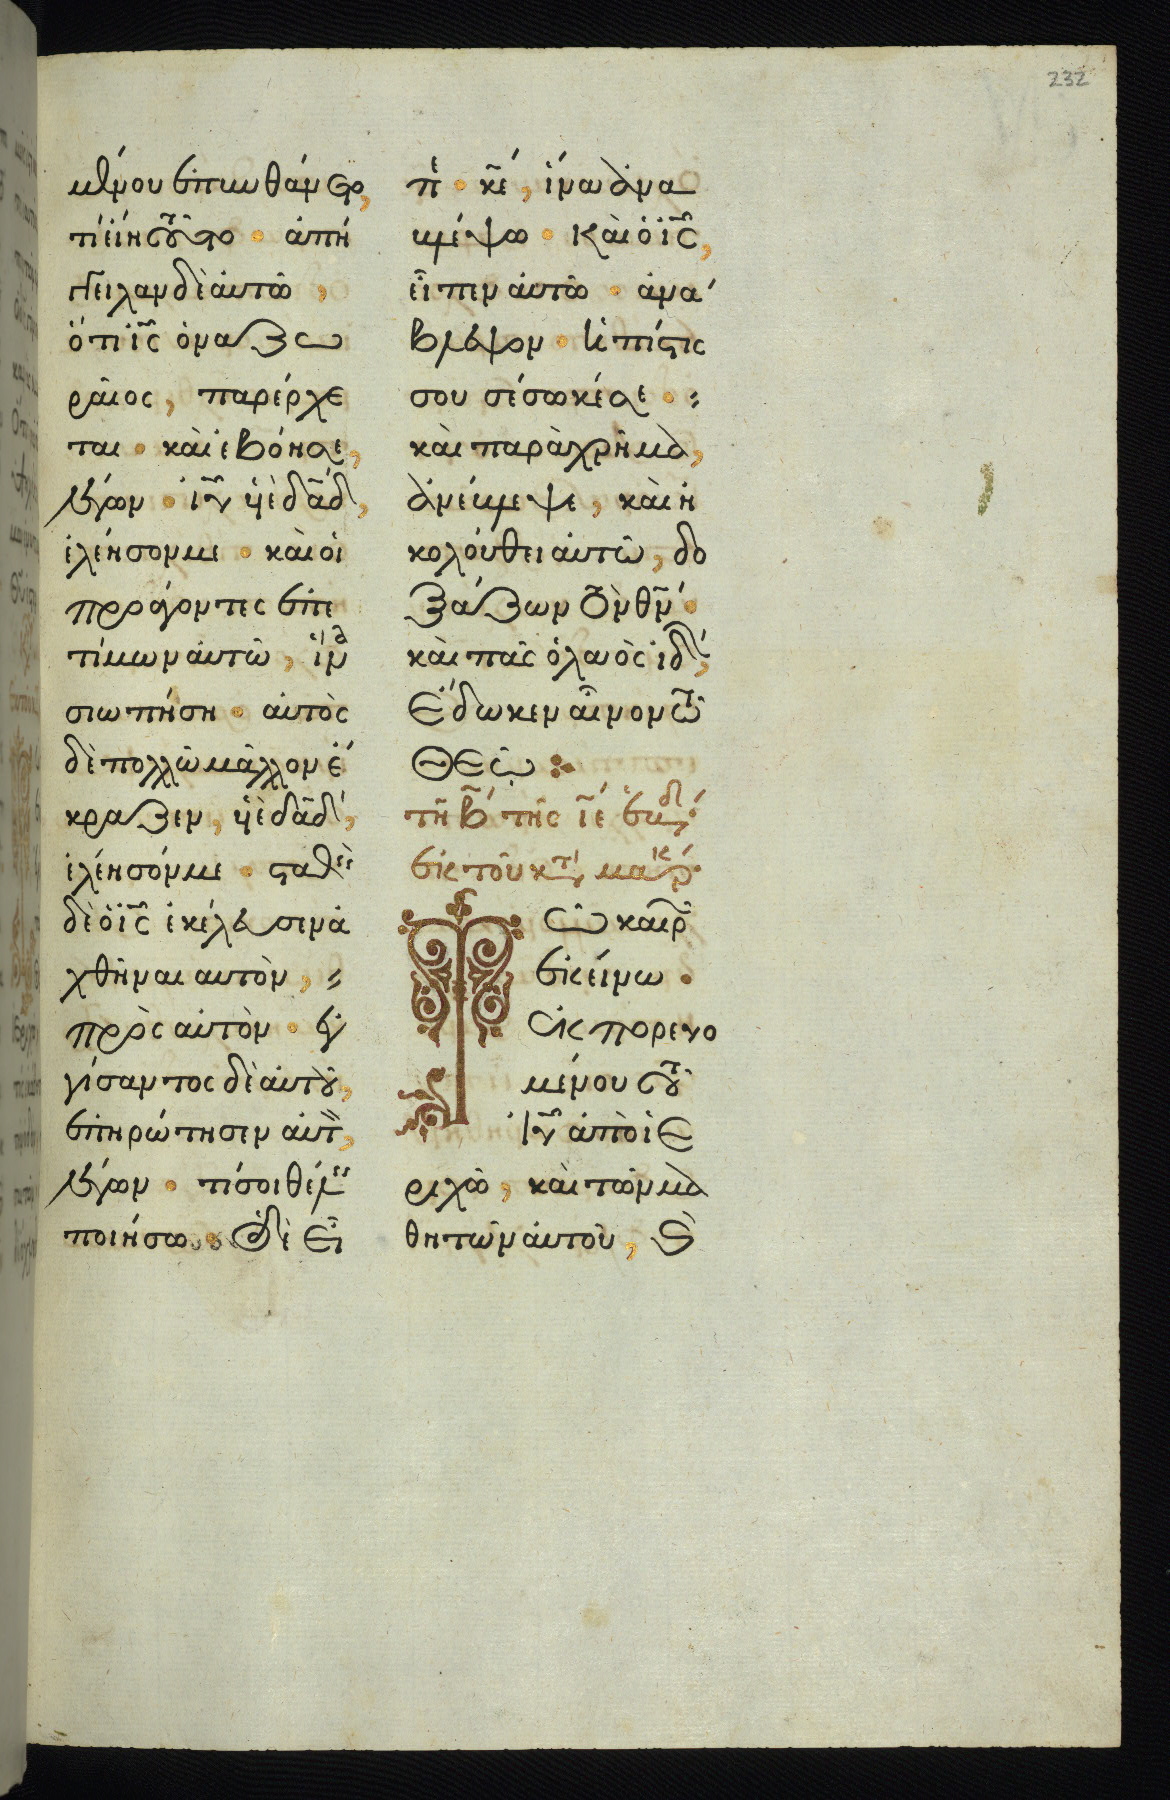 232
μένου ἐπυνθάνετο,
τί εἴη τοῦτο · ἀπή
γγειλαν δὲ ἀυτῶ ,
ὅτι ἰ̅ς̅ ὁ ναζω
ραῖος, παρέρχε
ται · καὶ ἐβόησε,
λέγων · ἰ̅υ̅ υἱὲ δα̅δ̅,
ἐλέησον με · καὶ οἱ
προάγοντες ἐπε
τίμων ἀυτῶ, ἵνα
σιωπήση · αὐτὸς
δὲ πολλῶ μᾶλλον ἔ
κραζεν, υἱὲ δα̅δ̅,
ἐλέησόν με · σταθεὶς
δὲ ὁ ἰ̅ς̅ ἐκέλευσεν ἀ
χθῆναι αυτὸν,
πρὸς αὐτὸν · ἐγ
γίσαντος δὲ ἀυτοῦ,
ἐπηρώτησεν ἀυτὸν,
λέγων · τί σοι θέλεις
ποιήσω · ὁ δὲ εἶ
πε · κ̅ε̅, ἵνα ἀνα
βλέψω · καὶ ὁ ἰ̅ς̅,
εἶπεν ἀυτῶ · ἀνά
βλεψον · ἡ πίστις
σου σέσωκέ σε ·
καὶ παρὰχρῆμα,
ἀνέβλεψε, καὶ ἠ
κολούθει ἀυτῶ, δο
ξάζων τὸν θ̅ν̅ ·
καὶ πᾶς ὁ λαὸς ἰδὼν,
ἔδωκεν αἶνον τῶ
Θεῶ
τῆ β̅ τῆς ι̅ε̅ ἑβδ
ἐκ τοῦ κατὰ μάρκ
Τῶ καιρῶ
ἐκείνω ·
ἐκπορευο
μένου τοῦ
ἰ̅υ̅ ἀπὸ ἱε
ριχὼ, καὶ τῶν μα
θητῶν ἀυτοῦ, καὶ